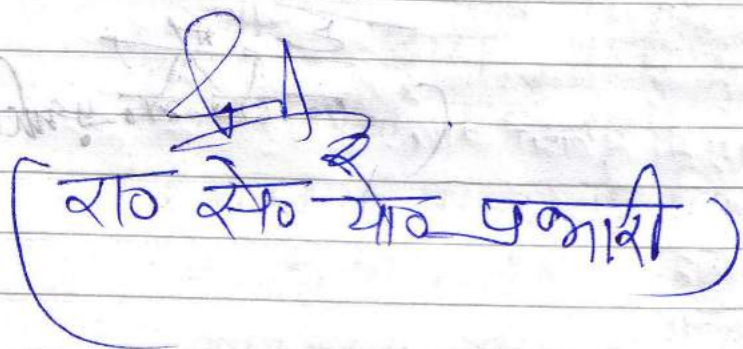 (रा० से० यो० प्रभारी)